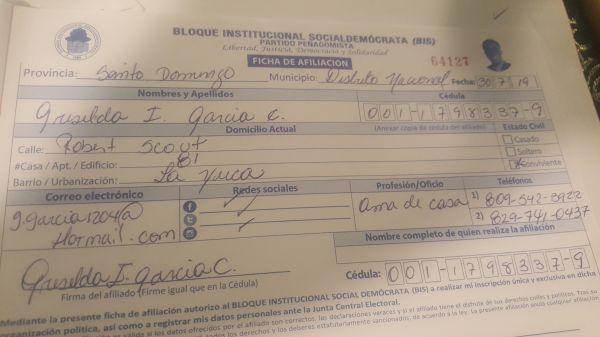 BLOQUE INSTITUCIONAL SOCIALDEMÓCRATA (BIS)
PARTIDO PEÑAGOMISTA
Libertad, Justicia, Democracia y Solidaridad
FICHA DE AFILIACION
64127
Provincia: Santo Domingo Municipio: Distrito Nacional Fecha: 30 7 19
Nombres y Apellidos Cédula
Griselda I. Garcia C. 001-1798337-9
Domicilio Actual (Anexar copia de cédula del afiliado) Estado Civil
Calle: Robert Scout Casado
#Casa / Apt. / Edificio: 81 Soltero
Barrio / Urbanización: La Yuca Conviviente
Correo electrónico Redes sociales Profesión/Oficio Teléfonos
g.garcia1204@ Ama de casa 1) 809-542-3922
Hotmail.com 2) 829-741-0437
Nombre completo de quien realiza la afiliación
Griselda I. Garcia C. Cédula: 001-1798337-9
Firma del afiliado (Firme igual que en la Cédula)
Mediante la presente ficha de afiliación autorizo al BLOQUE INSTITUCIONAL SOCIAL DEMÓCRATA (BIS) a realizar mi inscripción única y exclusiva en dicha
organización política, así como a registrar mis datos personales ante la Junta Central Electoral.